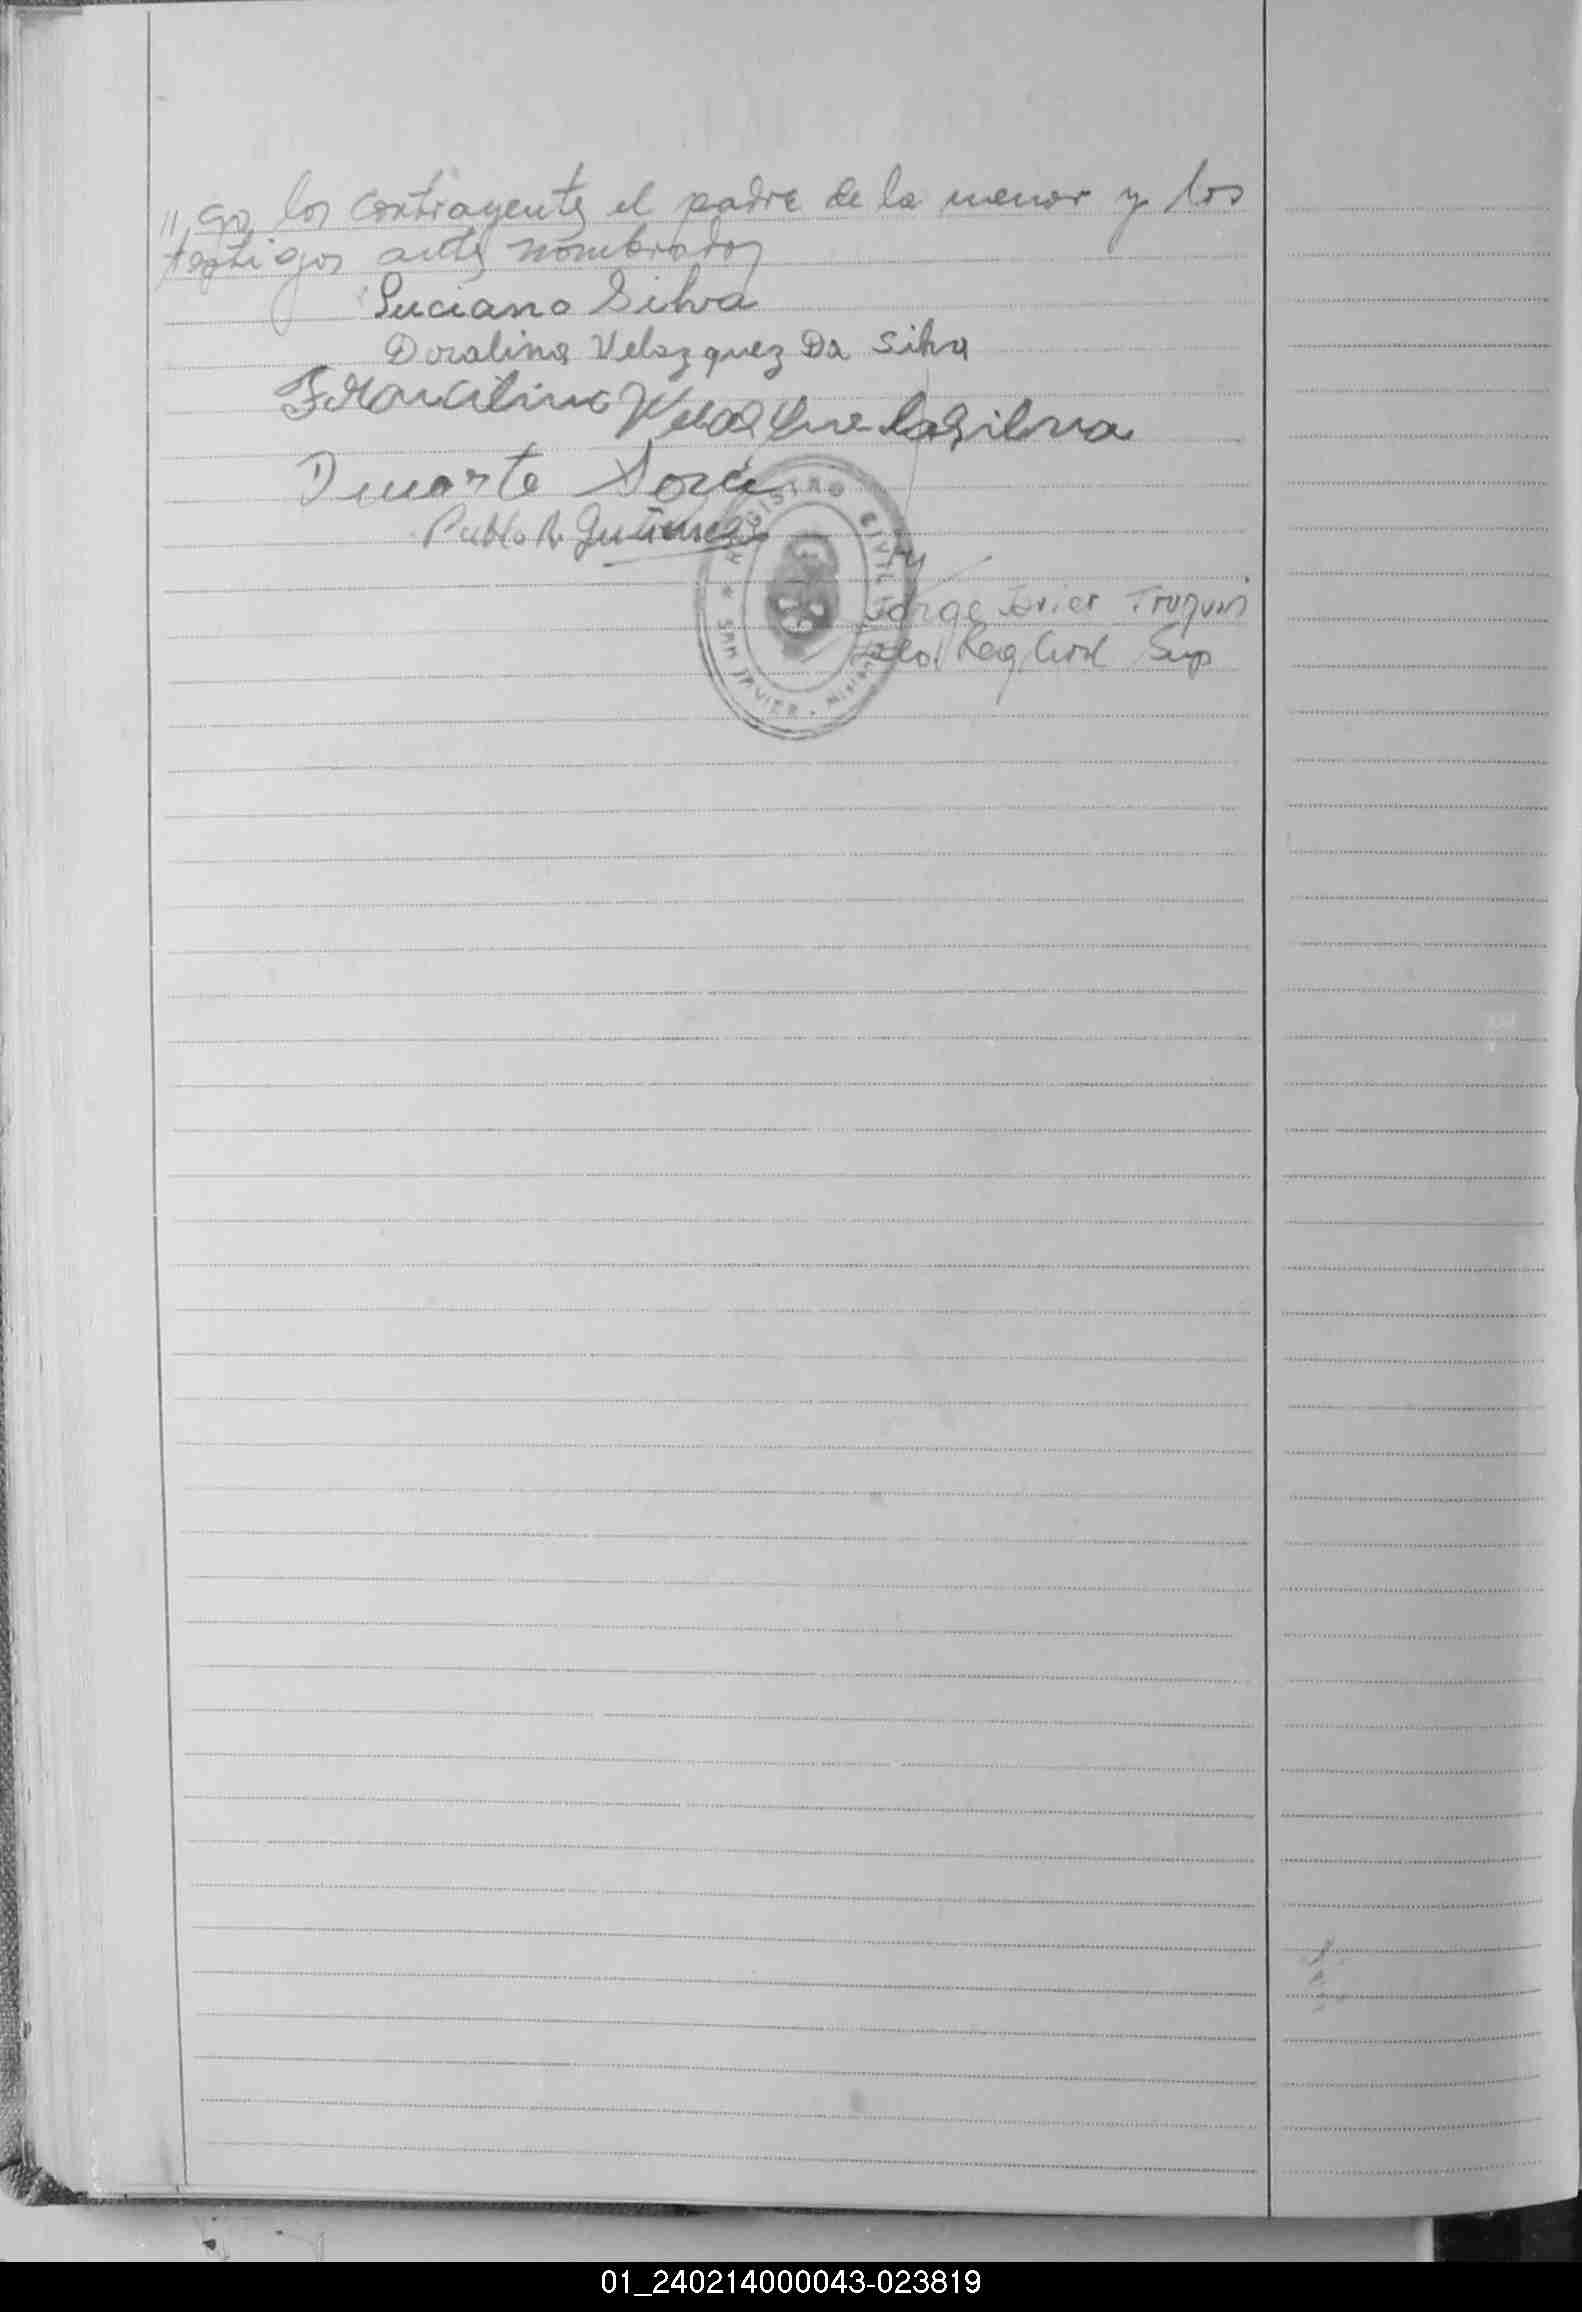 // go los contrayentes el padre de la menor y los
testigos antes nombrados
Luciano Silva
Doralina Velazquez Da Silva
Duarte
Pablo R. Gutierrez
REGISTRO CIVIL
SAN JAVIER - MISIONES
Jorge Javier
Reg Civil Sup
01_240214000043-023819